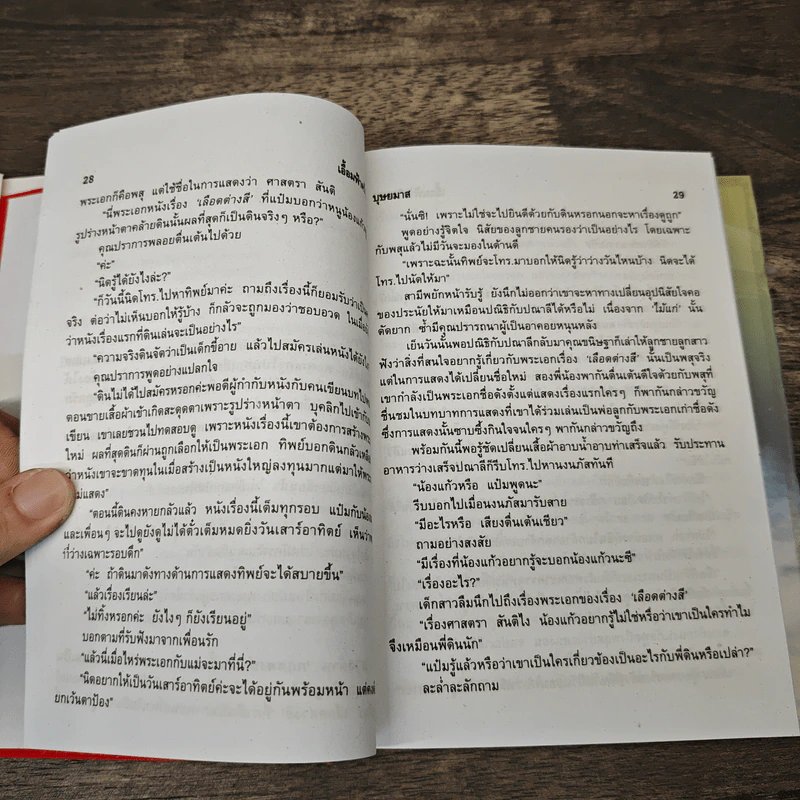 28
เอื้อมฟ้า
พระเอกก็คือพสุ แต่ใช้ชื่อในการแสดงว่า ศาสตรา สันติ
"นี่พระเอกหนังเรื่อง 'เลือดต่างสี' ที่แป้มบอกว่าหนูน้องแก้ว
รูปร่างหน้าตาคล้ายดินนั้นผลที่สุดก็เป็นดินจริงๆ หรือ?"
คุณปราการพลอยตื่นเต้นไปด้วย
"ค่ะ"
"นิดรู้ได้ยังไงล่ะ?"
"ก็วันนี้นิดโทร.ไปหาทิพย์มาค่ะ ถามถึงเรื่องนี้ก็ยอมรับว่าเป็น
จริง ต่อว่าไม่เห็นบอกให้รู้บ้าง ก็กลัวจะถูกมองว่าชอบอวด ในเมื่อ
ว่าหนังเรื่องแรกที่ดินเล่นจะเป็นอย่างไร"
"ความจริงดินจัดว่าเป็นเด็กขี้อาย แล้วไปสมัครเล่นหนังได้ยังไง
คุณปราการพูดอย่างแปลกใจ
"ดินไม่ได้ไปสมัครหรอกค่ะพอดีผู้กำกับหนังกับคนเขียนบทไป
ตอนขายเสื้อผ้าเข้าเกิดสะดุดตาเพราะรูปร่างหน้าตา บุคลิกไปเข้ากับ
เขียน เขาเลยชวนไปทดสอบดู เพราะหนังเรื่องนี้เขาต้องการสร้าง
ใหม่ ผลที่สุดดินก็ผ่านถูกเลือกให้เป็นพระเอก ทิพย์บอกดินกลัว
ว่าหนังเขาจะขาดทุนในเมื่อสร้างเป็นหนังใหญ่ลงทุนมากแต่มาให้
แสดง"
"ตอนนี้ดินคงหายกลัวแล้ว หนังเรื่องนี้เต็มทุกรอบ แป้มกับน้อง
และเพื่อนๆ จะไปดูยังดูไม่ได้ตั๋วเต็มหมดยิ่งวันเสาร์อาทิตย์ เห็นว่า
ที่ว่างเฉพาะรอบดึก"
"ค่ะ ถ้าดินมาดังทางด้านการแสดงทิพย์จะได้สบายขึ้น"
"แล้วเรื่องเรียนล่ะ"
"ไม่ทิ้งหรอกค่ะ ยังไงๆ ก็ยังเรียนอยู่"
บอกตามที่รับฟังมาจากเพื่อนรัก
"แล้วนี่เมื่อไหร่พระเอกกับแม่จะมาที่นี่?"
"นิดอยากให้เป็นวันเสาร์อาทิตย์ค่ะจะได้อยู่กันพร้อมหน้า แต่คง
ยกเว้นตาป้อง"
บุษยมาส
29
"นั่นซี! เพราะไม่ใช่จะไปยินดีด้วยกับดินหรอกนอกจะหาเรื่องดูถูก"
พูดอย่างรู้จิตใจ นิสัยของลูกชายคนรองว่าเป็นอย่างไร โดยเฉพาะ
กับพสุแล้วไม่มีวันจะมองในด้านดี
"เพราะฉะนั้นทิพย์จะโทร.มาบอกให้นิดรู้ว่าว่างวันไหนบ้าง นิดจะได้
โทร.ไปนัดให้มา"
สามีพยักหน้ารับรู้ ยังนึกไม่ออกว่าเขาจะหาทางเปลี่ยนอุปนิสัยใจคอ
ของประนัยให้มาเหมือนปณิธิกับปณาลีได้หรือไม่ เนื่องจาก 'ไม้แก่' นั้น
ดัดยาก ซ้ำมีคุณปรารถนาผู้เป็นอาคอยหนุนหลัง
เย็นวันนั้นพอปณิธิกับปณาลีกลับมาคุณขนิษฐาก็เล่าให้ลูกชายลูกสาว
ฟังว่าสิ่งที่สนใจอยากรู้เกี่ยวกับพระเอกเรื่อง 'เลือดต่างสี' นั้นเป็นพสุจริง
แต่ในการแสดงได้เปลี่ยนชื่อใหม่ สองพี่น้องพากันตื่นเต้นดีใจด้วยกับพสุที่
เขากำลังเป็นพระเอกชื่อดังตั้งแต่แสดงเรื่องแรกใครๆ ก็พากันกล่าวขวัญ
ชื่นชมในบทบาทการแสดงที่เขาได้ร่วมเล่นเป็นพ่อลูกกับพระเอกเก่าชื่อดัง
ซึ่งการแสดงนั้นซาบซึ้งกินใจจนใครๆ พากันกล่าวขวัญถึง
พร้อมกันนี้พอรู้ชัดเปลี่ยนเสื้อผ้าอาบน้ำอาบท่าเสร็จแล้ว รับประทาน
อาหารว่างเสร็จปณาลีก็รีบโทร.ไปหานงนภัสทันที
"น้องแก้วหรือ แป้มพูดนะ"
รีบบอกไปเมื่อนงนภัสมารับสาย
"มีอะไรหรือ เสียงตื่นเต้นเชียว"
ถามอย่างสงสัย
"มีเรื่องที่น้องแก้วอยากรู้จะบอกน้องแก้วนะซี"
"เรื่องอะไร?"
เด็กสาวลืมนึกไปถึงเรื่องพระเอกของเรื่อง 'เลือดต่างสี'
"เรื่องศาสตรา สันติไง น้องแก้วอยากรู้ไม่ใช่หรือว่าเขาเป็นใครทำไม
จึงเหมือนพี่ดินนัก"
"แป้มรู้แล้วหรือว่าเขาเป็นใครเกี่ยวข้องเป็นอะไรกับพี่ดินหรือเปล่า?"
ละล่ำละลักถาม